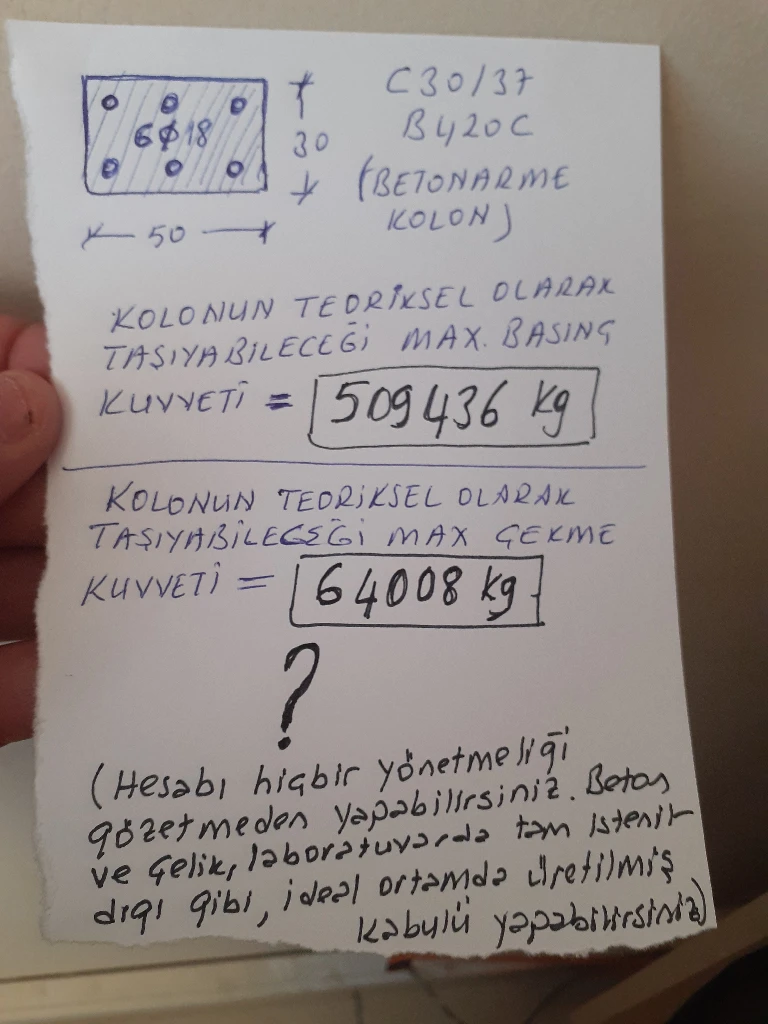 6ϕ18
30
50
C30/37
B420C
(BETONARME
KOLON)
KOLONUN TEORİKSEL OLARAK
TAŞIYABİLECEĞİ MAX. BASINÇ
KUVVETİ = 509436 kg
KOLONUN TEORİKSEL OLARAK
TAŞIYABİLECEĞİ MAX ÇEKME
KUVVETİ = 64008 kg
?
(Hesabı hiçbir yönetmeliği
gözetmeden yapabilirsiniz. Beton
ve Çelik, laboratuvarda tam istenil-
diği gibi, ideal ortamda üretilmiş
kabulü yapabilirsiniz)